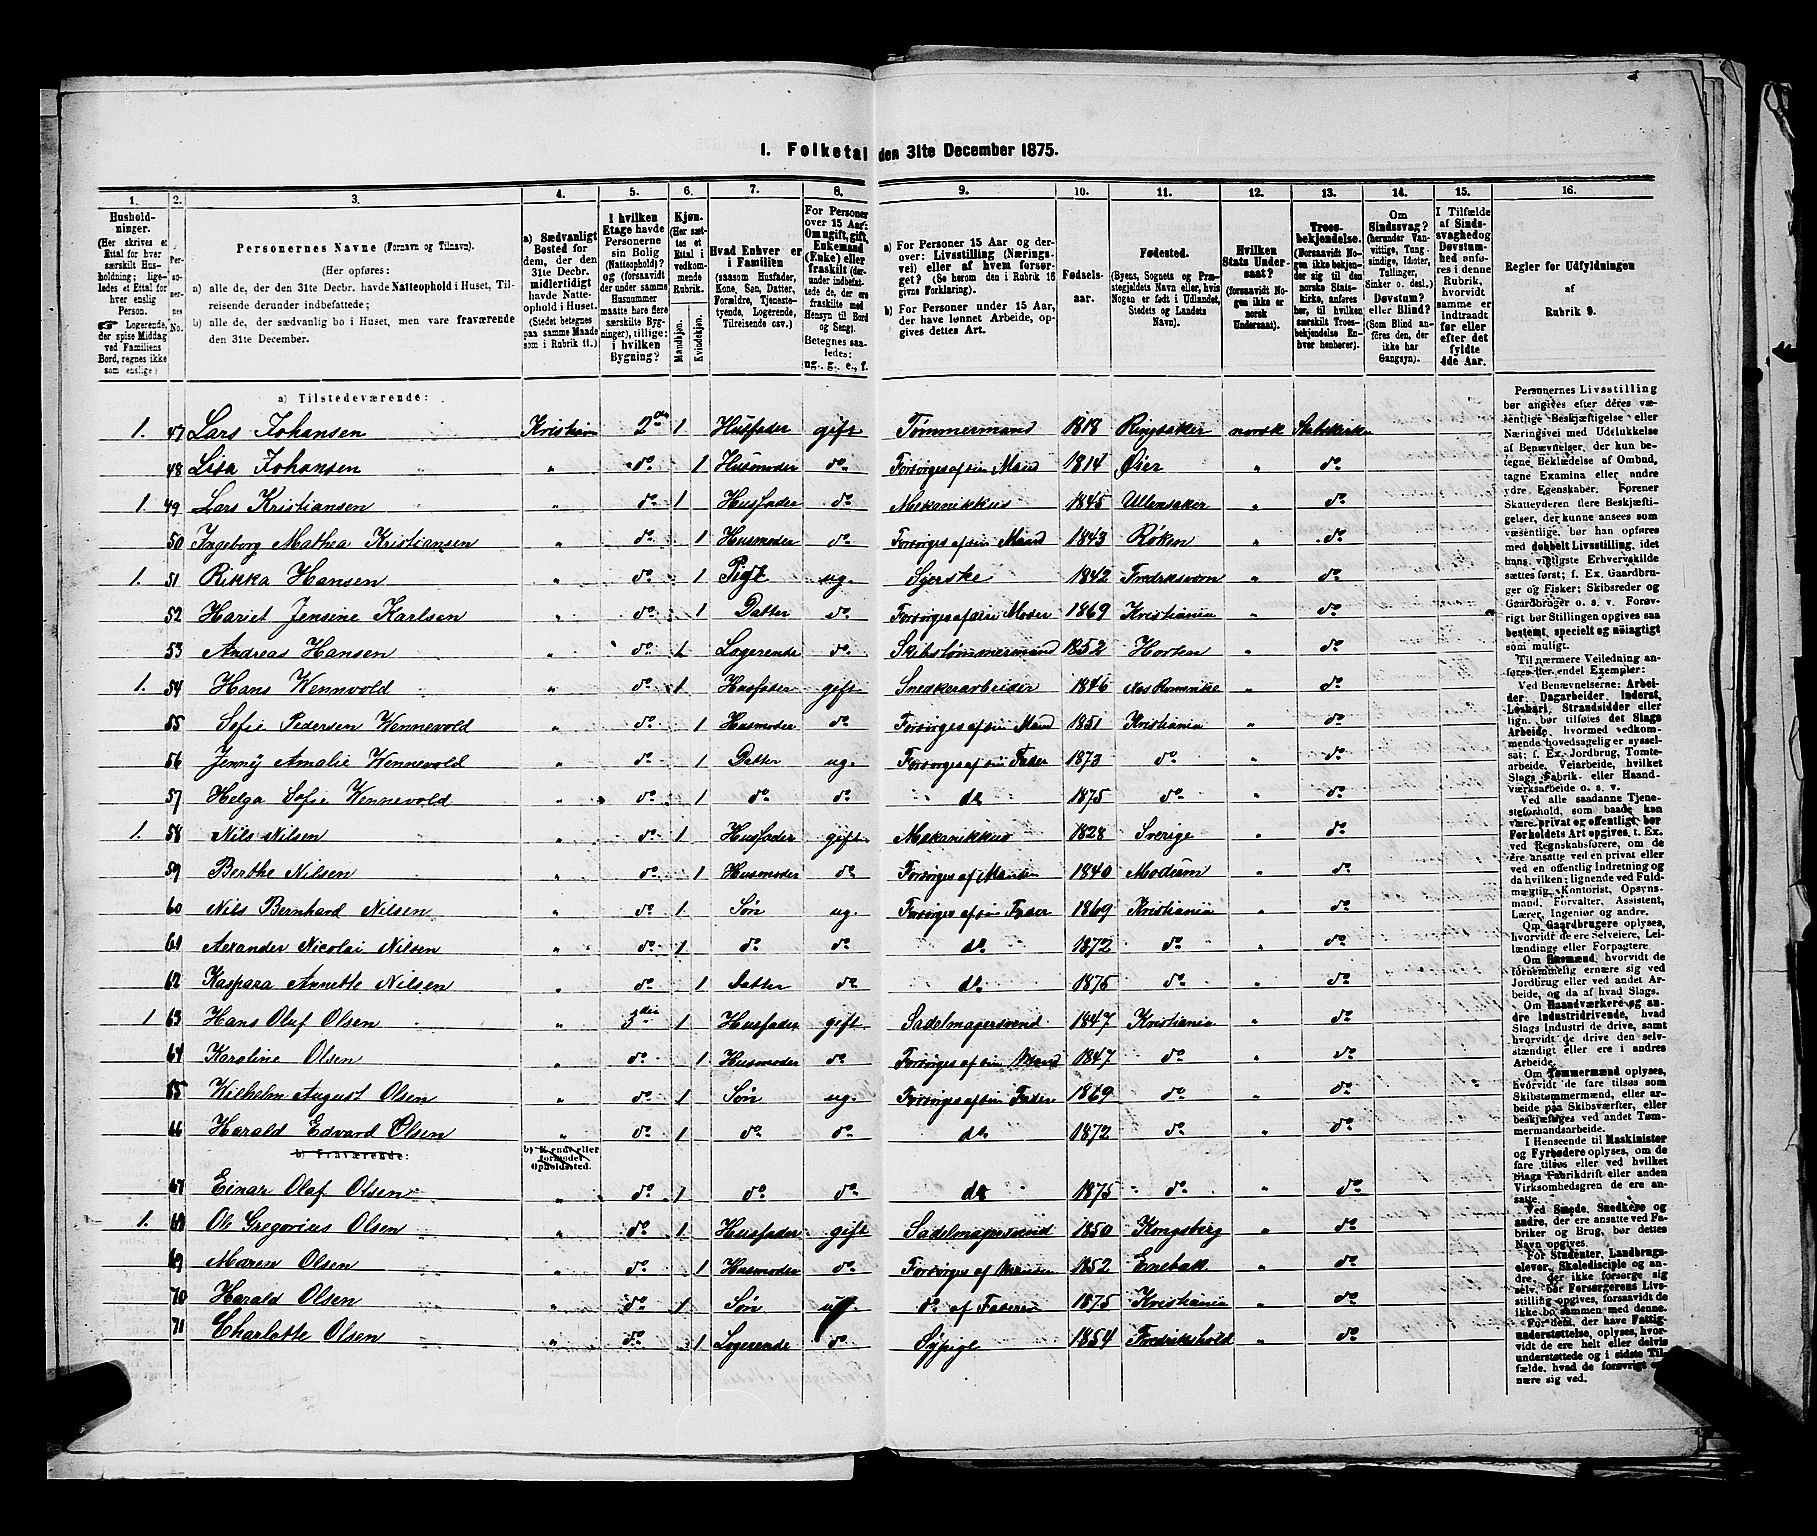 1. Folketal den 31te December 1875.
1. 2. 3. 4. 5. 6. 7. 8. 9. 10. 11. 12. 13. 14. 15. 16.
Husholdninger. (Her skrives et Ettal for hver særskilt Husholdning; ligeledes et Ettal for hver enslig Person. ☞ Logerende, der spise Middag ved Familiens Bord, regnes ikke som enslige.)
Personernes No.
Personernes Navne (Fornavn og Tilnavn).
(Her opføres:
a) alle de, der den 31te Decbr. havde Natteophold i Huset, Tilreisende derunder indbefattede;
b) alle de, der sædvanlig bo i Huset, men vare fraværende den 31te December.
a) Sædvanligt Bosted for dem, der den 31te Decbr. midlertidigt havde Natteophold i Huset. (Stedet betegnes paa samme Maade som i Rubrik 11.)
I hvilken Etage havde Personerne sin Bolig (Natteophold)? og (forsaavidt der under samme Husnummer maatte høre flere særskilte Bygninger), tillige: i hvilken Bygning?
Kjøn. (Her sættes et Ettal i vedkommende Rubrik. Mandkjøn. Kvindekjøn.
Hvad Enhver er i Familien (saasom Husfader, Kone, Søn, Datter, Forældre, Tjenestetyende, Logerende, Tilreisende osv.)
For Personer over 15 Aar: Om ugift, gift, Enkemand (Enke) eller fraskilt (derunder indbefattede de, der ere fraskilte med Hensyn til Bord og Seng). Betegnes saaledes: ug., g., e., f.
a) For Personer 15 Aar og derover: Livsstilling (Næringsvei) eller af hvem forsørget? (Se herom den i Rubrik 16 givne Forklaring).
b) For Personer under 15 Aar, der have lønnet Arbeide, opgives dettes Art.
Fødselsaar.
Fødested. (Byens, Sognets og Præstegjeldets Navn eller, hvis Nogen er født i Udlandet, Stedets og Landets Navn).
Hvilken Stats Undersaat? (forsaavidt Nogen ikke er norsk Undersaat).
Troesbekjendelse. (Forsaavidt Nogen ikke bekjender sig til den norske Statskirke, anføres her, til hvilken særskilt Troesbekjendelse Enhver henhører).
Om Sindssvag? (herunder Vanvittige, Tungsindige, Idioter, Tullinger, Sinker o. desl.) Døvstum? eller Blind? (Som Blind anføres den, der ikke har Gangsyn).
I Tilfælde af Sindssvaghed og Døvstumhed anføres i denne Rubrik, hvorvidt samme er indtraadt før eller efter det fyldte 4de Aar.
Regler for Udfyldningen af Rubrik 9.
a) Tilstedeværende:
1. 47 Lars Johansen Kristiania 2den 1 Husfader gift Tømmermand 1818 Ringsaker norsk Statskirke
48 Lisa Johansen " do 1 Husmoder do Forsørges af sin Mand 1814 Øier " do
1 49 Lars Kristiansen " do 1 Husfader do Mekanikkus 1845 Ullensaker " do
50 Ingeborg Mathea Kristiansen " do 1 Husmoder do Forsørges af sin Mand 1843 Røken " do
1. 51 Rikka Hansen " do 1 Pige ug. Syerske 1842 Fredriksværn " do
52 Hariet Jensine Karlsen " do 1 Datter do Forsørges af sin Moder 1869 Kristiania " do
53 Andreas Hansen " do 1 Logerende do Skibstømmermand 1852 Horten " do
1. 54 Hans Wennvold " do 1 Husfader gift Snedkerarbeider 1846 Nes Romerike " do
55 Sofie Pedersen Wennevold " do 1 Husmoder do Forsørges af sin Mand 1851 Kristiania " do
56 Jenny Amalie Wennevold " do 1 Datter ug. Forsørges af sin Fader 1873 do " do
57 Helga Sofie Wennevold " do 1 do do do 1875 do " do
1. 58 Nils Nilsen " do 1 Husfader gift Mekanikkus 1828 Sverige " do
59 Berthe Nilsen " do 1 Husmoder do Forsørges af Manden 1840 Modum " do
60 Nils Bernhard Nilsen " do 1 Søn ug. Forsørges af sin Fader 1869 Kristiania " do
61 Aexander Nicolai Nilsen " do 1 do do do 1872 do " do
62 Kaspara Annette Nilsen " do 1 Datter do do 1875 do " do
1 63 Hans Oluf Olsen " 3die 1 Husfader gift Sadelmagersvend 1847 Kristiania " do
64 Karoline Olsen " do 1 Husmoder do Forsørges af sin Mand 1847 do " do
65 Wilhelm August Olsen " do 1 Søn ug. Forsørges af sin Fader 1869 do " do
66 Harald Edvard Olsen " do 1 do do do 1872 do " do
b) Fraværende: b) Kjendt eller formodet Opholdssted.
67 Einar Olaf Olsen " do 1 do do do 1875 do " do
1. 68 Ole Gregorius Olsen " do 1 Husfader gift Sadelmagersvend 1850 Kongsberg " do
69 Maren Olsen " do 1 Husmoder do Forsørges af Manden 1852 Enebak " do
70 Harald Olsen " do 1 Søn ug. do af Faderen 1875 Kristiania " do
71 Charlotte Olsen " do 1 Logerende do Sypige 1854 Fredrikshald " do
Personernes Livsstilling bør angives efter deres væsentlige Beskjæftigelse eller Næringsvei med Udelukkelse af Benævnelser, der kun betegne Beklædelse af Ombud, tagne Examina eller andre ydre Egenskaber. Forener Skatteyderen flere Beskjæftigelser, der kunne ansees som væsentlige, bør han opføres med dobbelt Livsstilling, idet hans vigtigste Erhvervskilde sættes først; f. Ex. Gaardbruger og Fisker; Skibsreder og Gaardbruger o. s. v. Forøvrigt bør Stillingen opgives saa bestemt, specielt og nøiagtigt som muligt.
Til nærmere Veiledning anføres her endel Exempler:
Ved Benævnelserne: Arbeider, Dagarbeider, Inderst, Løskarl, Strandsidder eller lign. bør tilføies det Slags Arbeide, hvormed vedkommende hovedsagelig er sysselsat; f. Ex. Jordbrug, Tomtearbeide, Veiarbeide, hvilket Slags Fabrik- eller Haandværksarbeide o. s. v.
Ved alle saadanne Tjenesteforhold, som baade kan være privat og offentligt, bør Forholdets Art opgives, t. Ex. ved Regnskabsførere, om de ere ansatte ved en privat eller ved en offentlig Indretning og da hvilken; lignende ved Fuldmægtig, Kontorist, Opsynsmand, Forvalter, Assistent, Lærer, Ingeniør og andre.
Om Gaardbrugere oplyses, hvorvidt de ere Selveiere, Leilændinge eller Forpagtere.
Om Husmænd, hvorvidt de fornemmelig ernære sig ved Jordbrug eller ved andet Arbeide, og da af hvad Slags.
Om Haandværkere og andre Industridrivende, hvad Slags Industri de drive, samt hvorvidt de drive den selvstændigt eller ere i andres Arbeide.
Om Tømmermænd oplyses, hvorvidt de fare tilsøs som Skibstømmermænd, eller arbeide paa Skibsværfter, eller beskjæftiges ved andet Tømmermandsarbeide.
I Henseende til Maskinister og Fyrbødere oplyses, om de fare tilsøs eller ved hvilket Slags Fabrikdrift eller anden Virksomhedsgren de ere ansatte.
Ved Smede, Snedkere og andre, der ere ansatte ved Fabriker og Brug, bør dettes Navn opgives.
For Studenter, Landbrugselever, Skoledisciple og andre, der ikke forsørge sig selv, bør Forsørgerens Livsstilling opgives, forsaavidt de ikke bo sammen med denne.
For dem, der have Fattigunderstøttelse, oplyses, hvorvidt de ere helt eller delvis understøttede og i sidste Tilfælde, hvad de forøvrigt ernære sig ved.